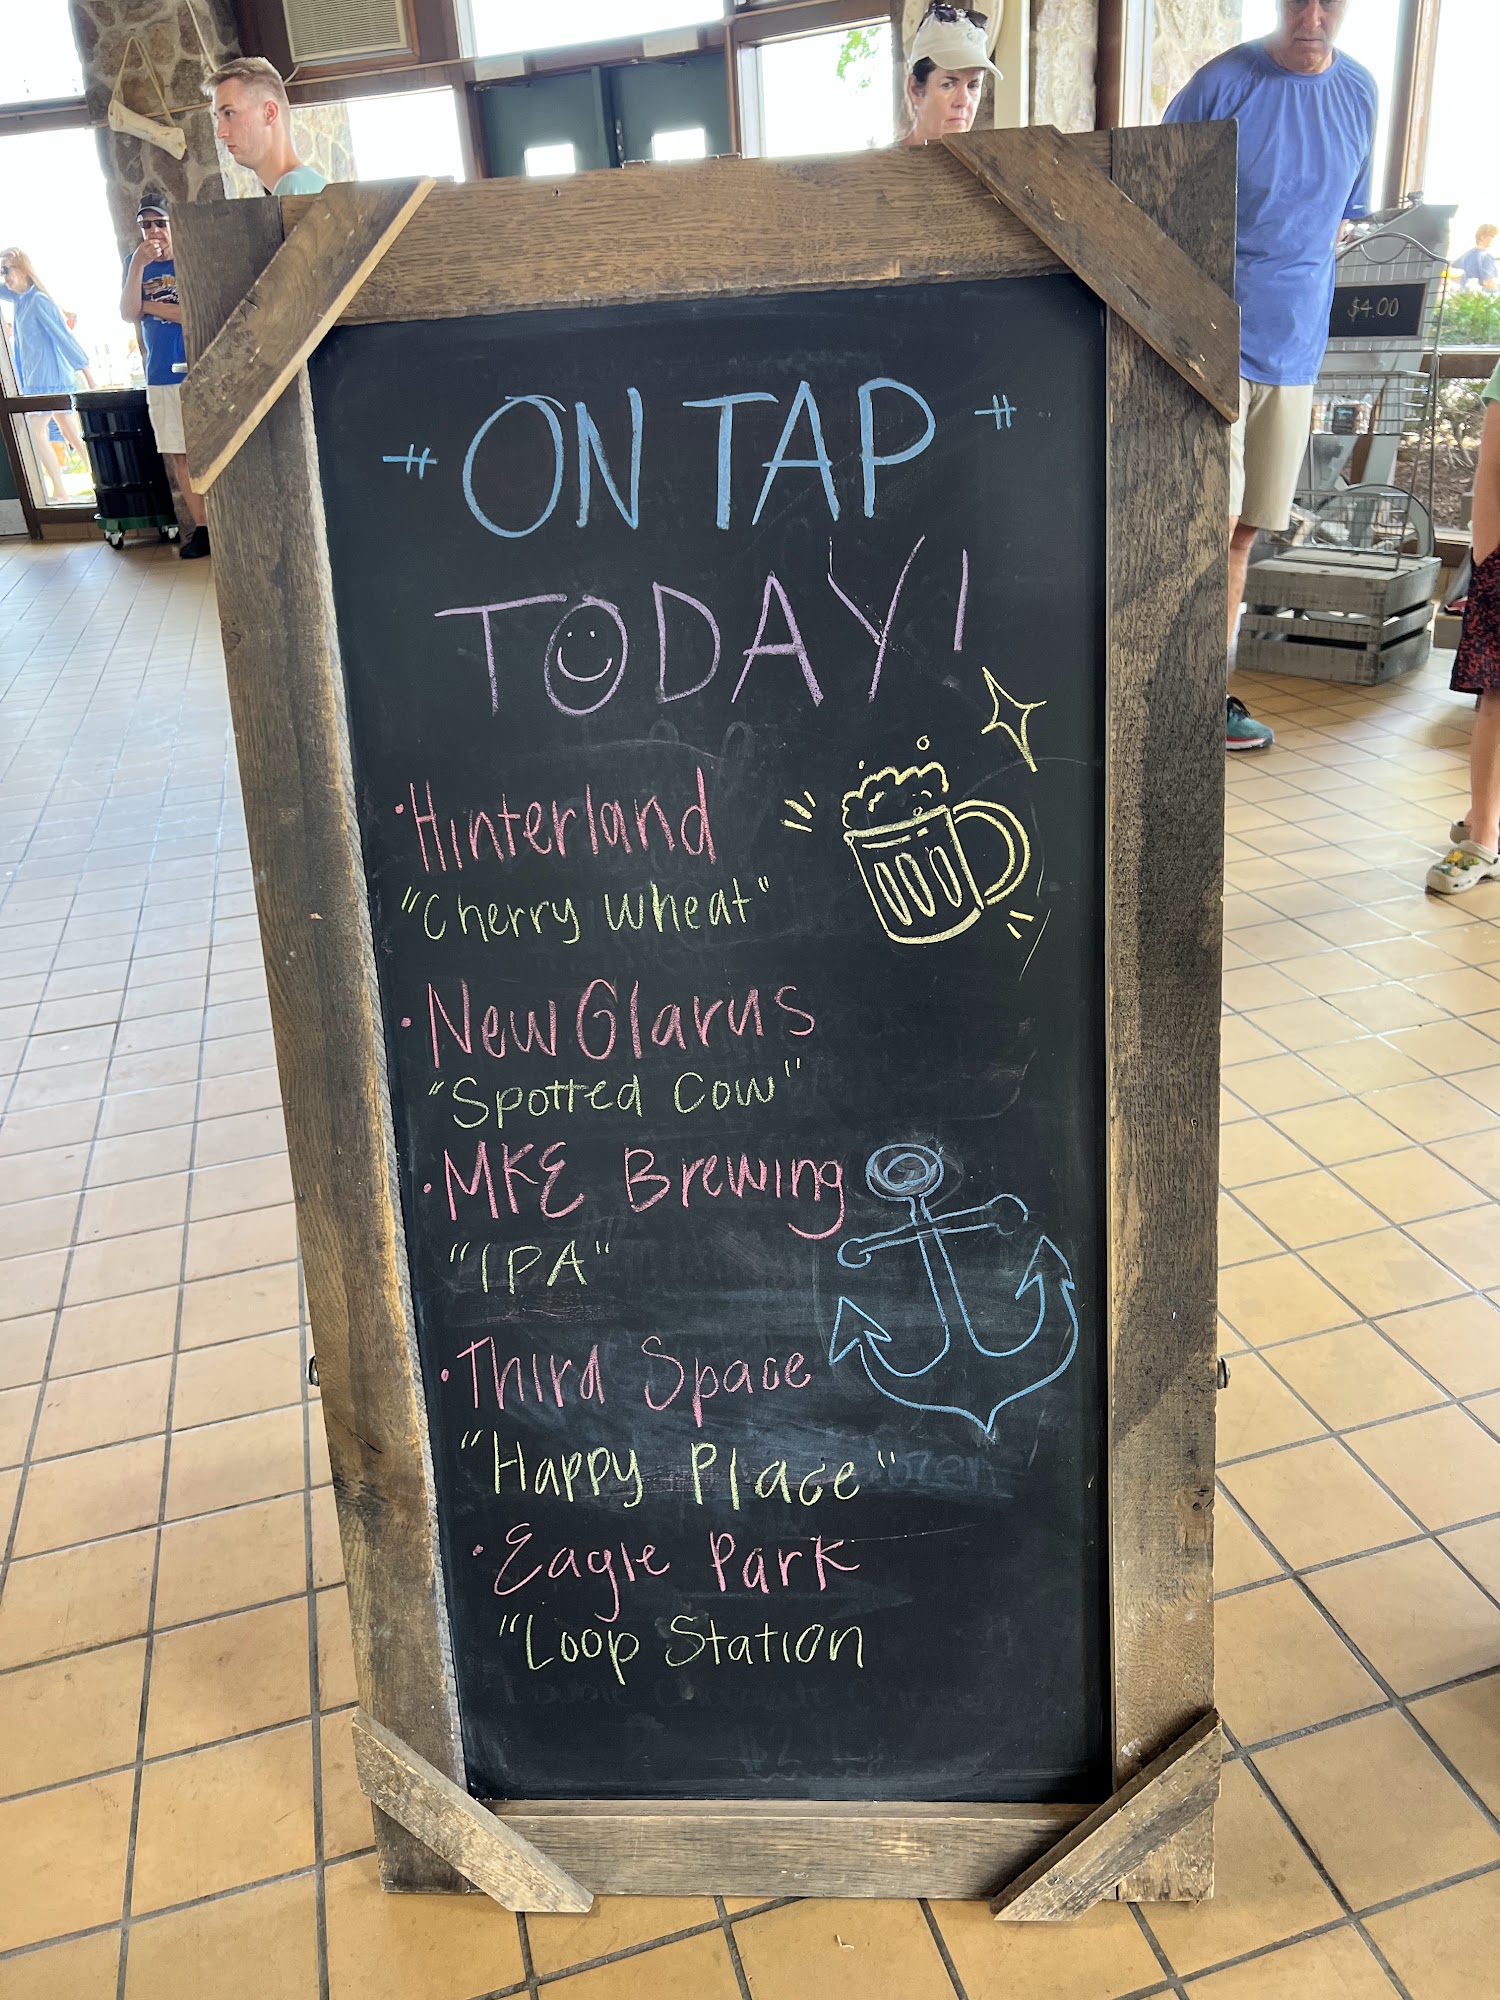 ON TAP
TODAY!
$4.00
• Hinterland
"Cherry Wheat"
• New Glarus
"Spotted Cow"
• MKE Brewing
"IPA"
• Third Space
"Happy Place"
• Eagle Park
"Loop Station